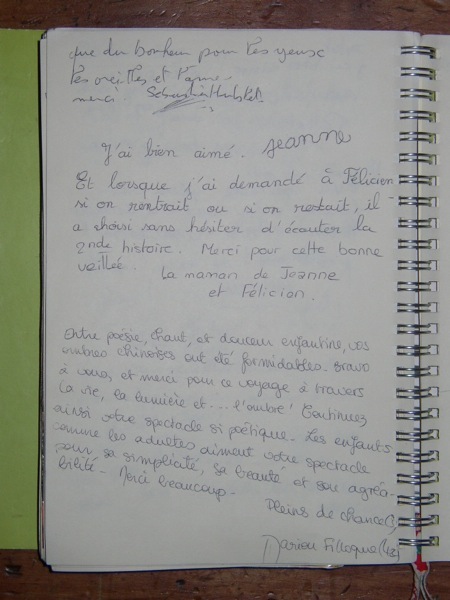 que du bonheur pour les yeux
les oreilles et l'ame -
merci.
J'ai bien aimé. Jeanne
Et lorsque j'ai demandé à Félicien
si on rentrait ou si on restait, il
a choisi sans hésiter d'écouter la
2nde histoire. Merci pour cette bonne
veillée.
La maman de Jeanne
et Félicien.
Entre poésie, chant, et douceur enfantine, vos
ombres chinoises ont été formidables. Bravo
à vous, et merci pour ce voyage à travers
la vie, la lumière et... l'ombre! Continuez
ainsi votre spectacle si poétique. Les enfants
comme les adultes aiment votre spectacle
pour sa simplicité, sa beauté et son agréa-
bilité - Merci beaucoup -
Pleins de chance